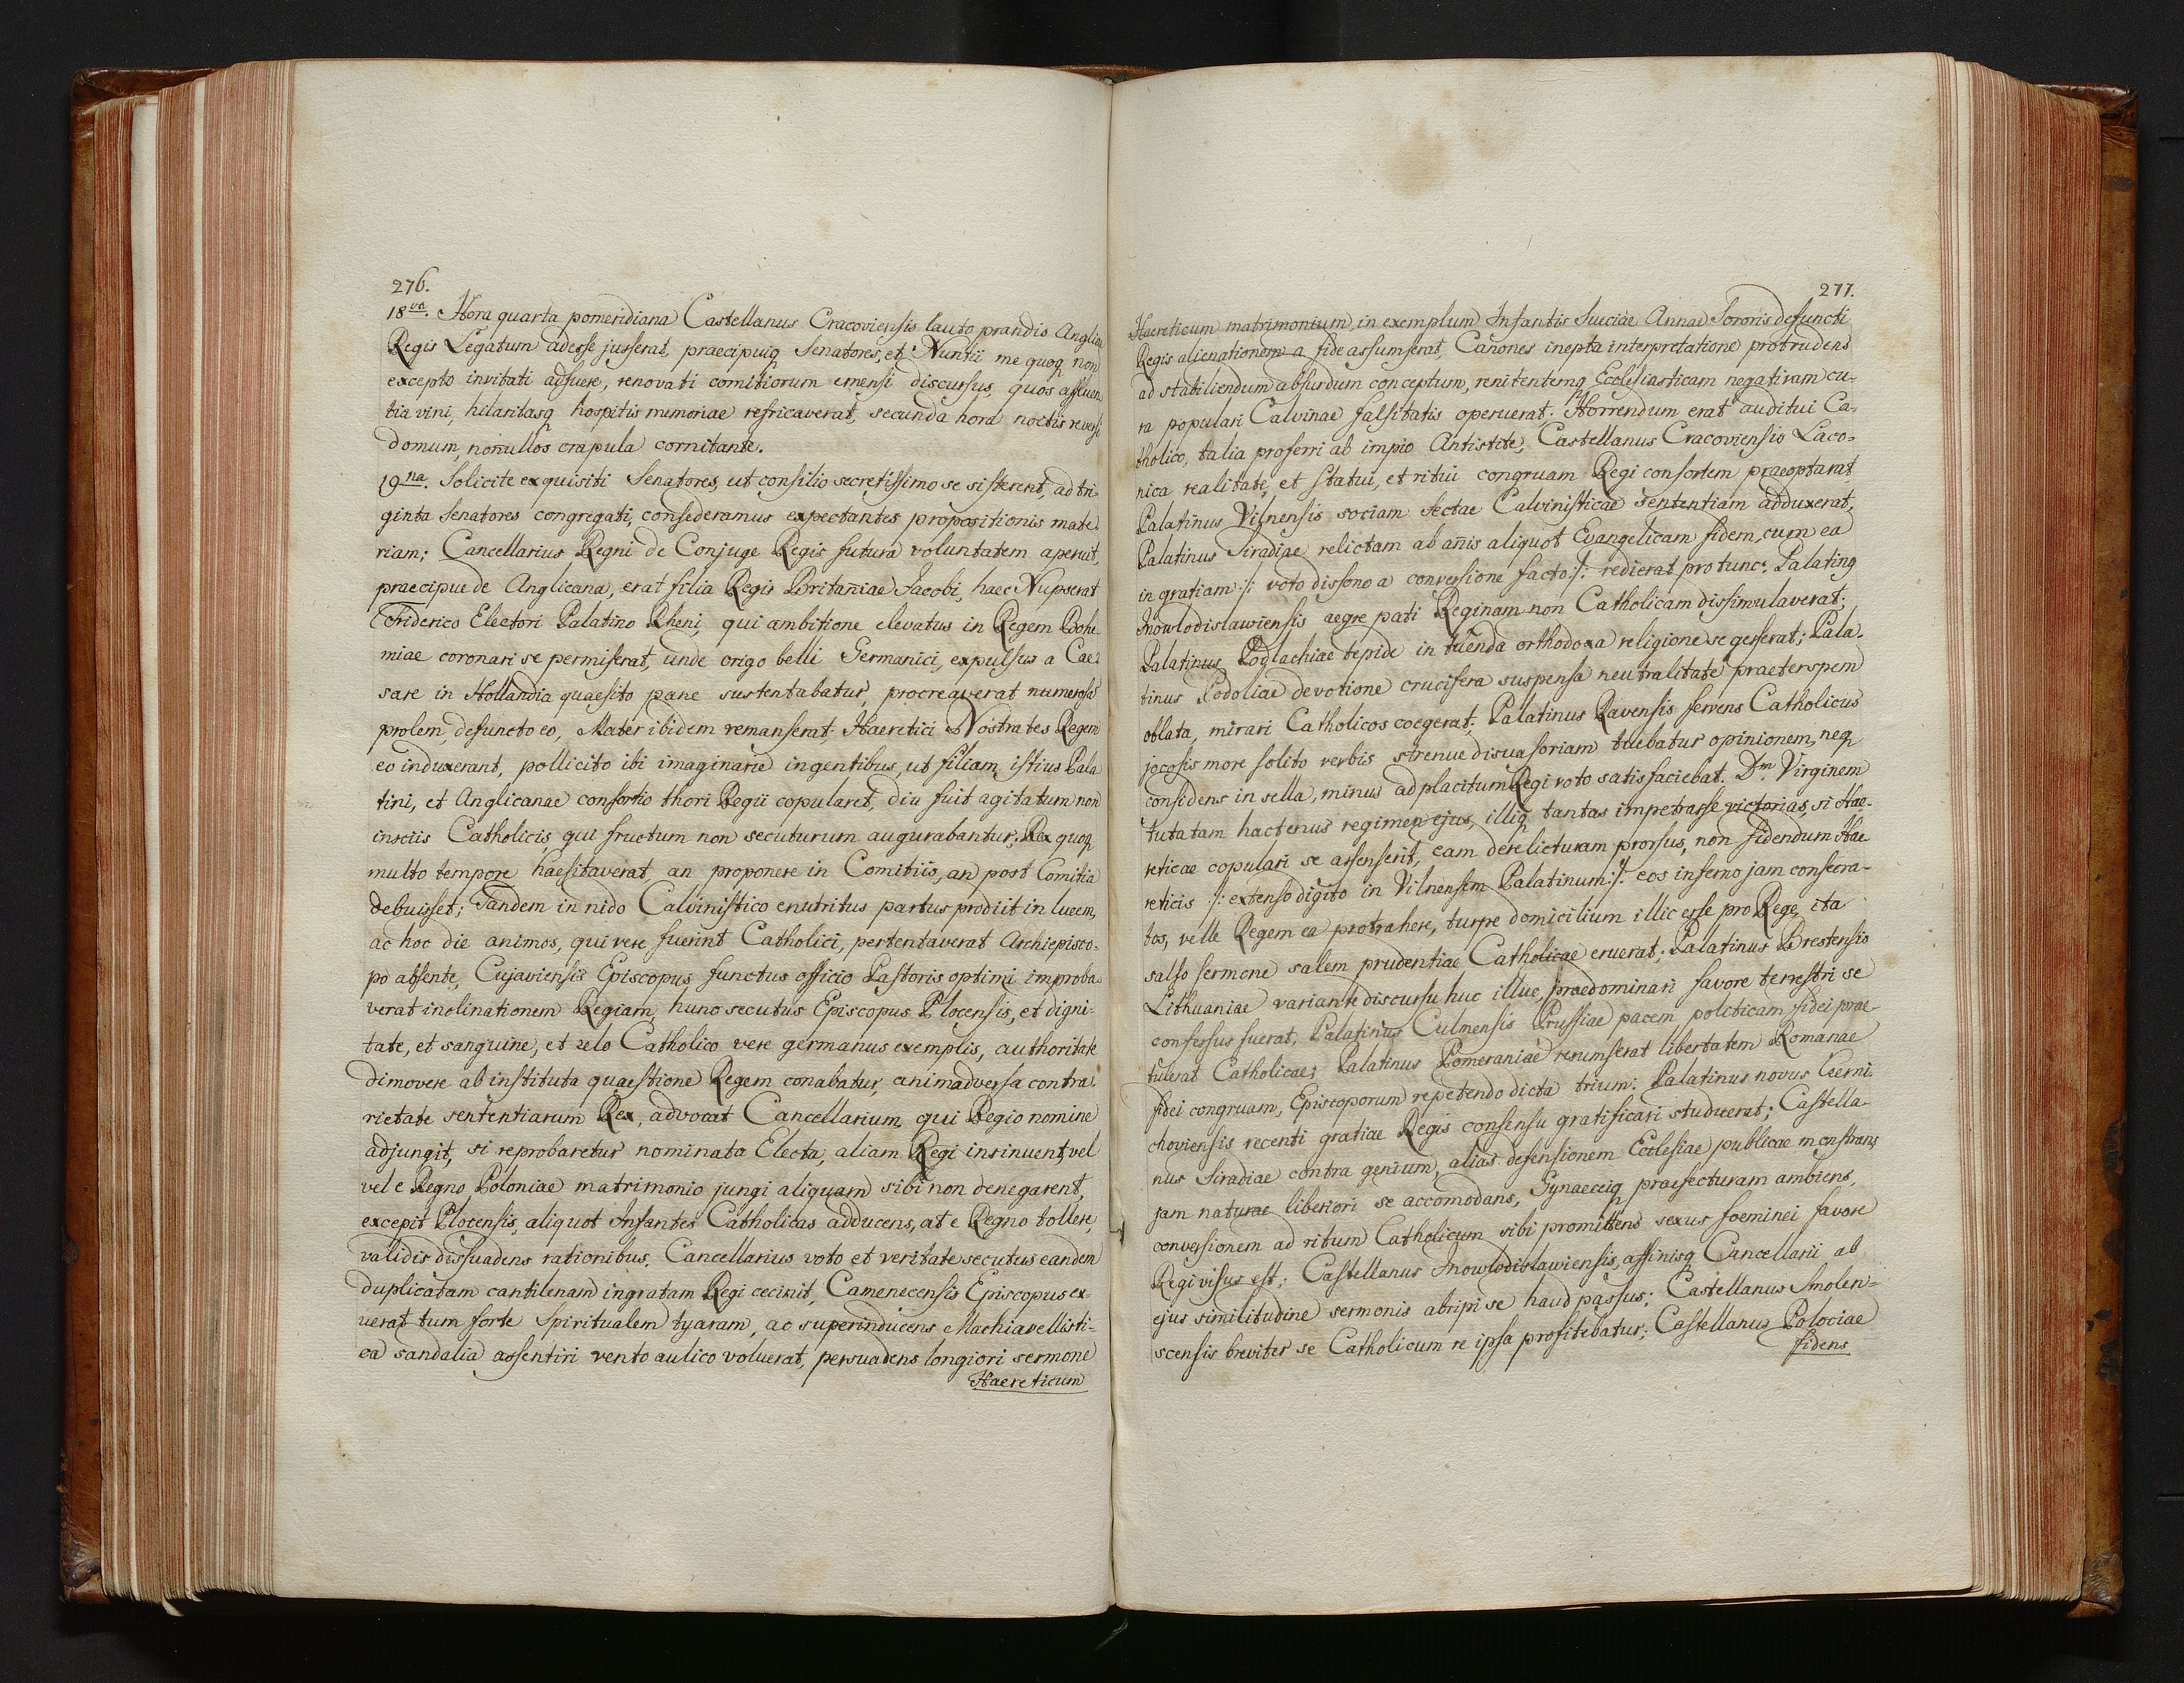 276.
18va. Hora quarta pomeridiana Castellanus Cracoviensis lauto prandio Angliae
Regis Legatum adesse jusserat, praecipuiq Senatores, et Nuntii me quoq non
excepto invitati adfuere, renovati comitiorum emensi discursus, quos affluen
tia vini, hilaritasq hospitis memoriae refricaverat, secunda hora noctis reversi
domum, nonullos crapula comitante.
19na. Solicite exquisiti Senatores, ut consilio secretissimo se sisterent, ad tri-
ginta Senatores congregati, consederamus expectantes propositionis mate
riam; Cancellarius Regni de Conjuge Regis futura voluntatem aperuit,
praecipue de Anglicana, erat filia Regis Britaniae Jacobi, haec Nupserat
Friderico Electori Palatino Rheni, qui ambitione elevatus in Regem Bohe
miae coronari se permiserat, unde origo belli Germanici, expulsus a Cae-
sare in Hollandia quaesito pane sustentabatur, procreaverat numerosa
prolem, defuncto eo, Mater ibidem remanserat; Haeretici Nostrates Regem
eo induxerant, pollicito ibi imaginarie ingentibus, ut filiam istius Pala
tini, et Anglicanae consortio thori Regii copularet, diu fuit agitatum non
insciis Catholicis, qui fructum non secuturum augurabantur; Rex quoq
multo tempore haesitaverat, an proponere in Comitiis, an post Comitia
debuisset; Tandem in nido Calvinistico enutritus partus prodiit in lucem,
ac hoc die animos, qui vere fuerint Catholici, pertentaverat Archiepisco-
po absente, Cujaviensis Episcopus functus officio Pastoris optimi improba-
verat inclinationem Regiam, hunc secutus Episcopus Plocensis, et digni-
tate, et sanguine, et zelo Catholico vere germanus exemplis, authoritate
dimovere ab instituta quaestione Regem conabatur, animadversa contra-
rietate sententiarum Rex, advocat Cancellarium, qui Regio nomine
adjungit, si reprobaretur nominata Electa, aliam Regi insinuent, vel
vel e Regno Poloniae matrimonio jungi aliquam sibi non denegarent,
excepit Plocensis, aliquot Infantes Catholicas adducens, at e Regno tollere,
validis dissuadens rationibus. Cancellarius voto et veritate secutus eandem
duplicatam cantilenam ingratam Regi cecinit, Camenecensis Episcopus ex-
uerat tum forte Spiritualem tyaram, ac superinducens Machiavellisti-
ca sandalia assentiri vento aulico voluerat, persuadens longiori sermone
Haereticum
277.
Haereticum matrimonium in exemplum Infantis Sueciae Annae Sororis defuncti
Regis alienationem a fide assumserat, Canones inepta interpretatione protrudens
ad stabiliendum absurdum conceptum, renitentemq Ecclesiasticam negativam cu-
ra populari Calvinae falsitatis operuerat. Horrendum erat auditui Ca-
tholico, talia proferri ab impio Antistite, Castellanus Cracoviensis Laco-
nica realitate, et statui, et ritui congruam Regi consortem praeoptarat
Palatinus Vilnensis sociam sectae Calvinisticae sententiam adduxerat,
Palatinus Siradiae relictam ab anis aliquot Evangelicam fidem, cum ea
in gratiam /: voto dissono a conversione facto :/ redierat pro tunc. Palating
Inowlodislawiensis aegre pati Reginam non Catholicam dissimulaverat;
Palatinus Podlachiae tepide in tuenda orthodoxa religione se gesserat; Pala-
tinus Podoliae devotione crucifera suspensa neutralitate praeter spem
oblata, mirari Catholicos coegerat; Palatinus Ravensis fervens Catholicus
jocosis more solito verbis strenue disuasoriam tuebatur opinionem, neq
considens in sella, minus ad placitum Regi voto satisfaciebat. Dm. Virginem
tutatam hactenus regimen ejus, illiq tantas impetrasse victorias, si Hae-
reticae copulari se assenserit, eam derelicturam prorsus, non fidendum Hae
reticis /: extenso digito in Vilnensem Palatinum :/ eos inferno jam consecra-
tos, velle Regem ea protrahere, turpe domicilium illic esse pro Rege, ita
salso sermone salem prudentiae Catholicae eruerat; Palatinus Brestensis
Lithuaniae variante discursu huc illuc, praedominari favore terrestri se
confessus fuerat; Palatinus Culmensis Prussiae pacem politicam fidei prae-
tulerat Catholicae; Palatinus Pomeraniae resumserat libertatem Romanae
fidei congruam, Episcoporum repetendo dicta trium: Palatinus novus Czerni-
choviensis recenti gratiae Regis consensu gratificari studuerat; Castella-
nus Siradiae contra genium, alias defensionem Ecclesiae publicae monstrans,
jam naturae liberiori se accomodans, Gynaeceiq praefecturam ambiens,
conversionem ad ritum Catholicum sibi promittens sexus foeminei favore
Regi visus est; Castellanus Inowlodislawiensis, affinisq Cancellarii ab
ejus similitudine sermonis abripi se haud passus; Castellanus Smolen-
scensis breviter se Catholicum re ipsa profitebatur; Castellanus Polociae
fidens